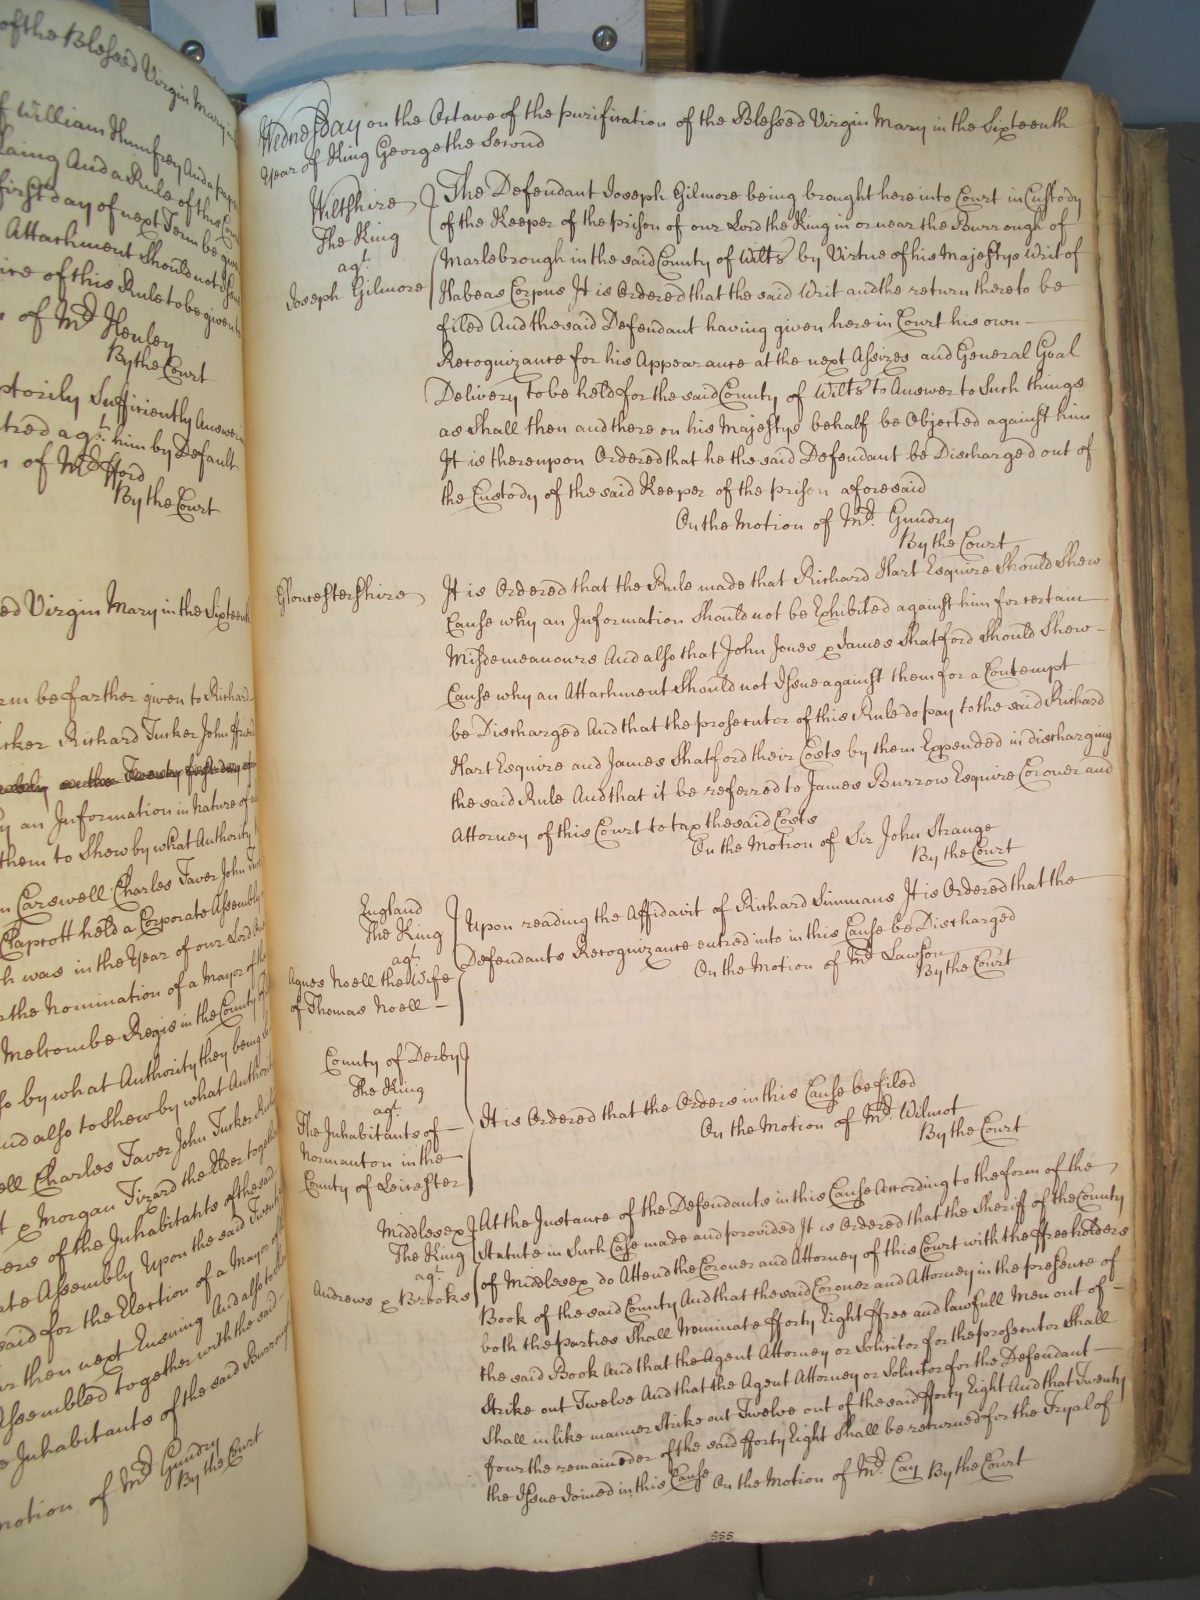 of the Blessed Virgin Mary in
of William Humfrey And a
Laing And a Rule of this Court
first day of next Term be given
Attachment Should not Issue
ice of this Rule to be given
of Mr. Henley
By the Court
ptorily Sufficiently Answer
tred agt. him by Default
n of Mr. fford
By the Court
ed Virgin Mary in the Sixteenth
rm be farther given to Richard
ucker Richard Tucker John
on the Twenty first day of
y an Information in Nature of
them to Shew by what Authority
n Carswell Charles Taver John
Clapcott held a Corporate Assembly
h was in the Year of our Lord
the Nomination of a Mayor of the
Melcombe Regis in the County of
so by what Authority they being
and also to Shew by what Authority
ell Charles Taver John Tucker
t & Morgan Tizard the Elder together
ers of the Inhabitants of the said
ate Assembly Upon the said
said for the Election of a Mayor of
ar then next Ensuing And also to
Assembled together with the said
e Inhabitants of the said Burrough
motion of Mr. Gundry
By the Court
Wednesday on the Octave of the purification of the Blessed Virgin Mary in the Sixteenth
Year of King George the Second
Wiltshire
The King
agt.
Joseph Gilmore
The Defendant Joseph Gilmore being brought here into Court in Custody
of the Keeper of the prison of our Lord the King in or near the Burrough of
Marlebrough in the said County of Wilts by Virtue of his Majestys Writ of
Habeas Corpus It is Ordered that the said Writ and the return thereto be
filed And the said Defendant having given here in Court his own
Recognizance for his Appearance at the next Assizes and General Goal
Delivery to be held for the said County of Wilts to Answer to Such things
as Shall then and there on his Majestys behalf be Objected against him
It is thereupon Ordered that he the said Defendant be Discharged out of
the Custody of the said Keeper of the prison aforesaid
On the Motion of Mr. Gundry
By the Court
Gloucestershire
It is Ordered that the Rule made that Richard Hart Esquire Should Shew
Cause why an Information Should not be Exhibited against him for certain
Misdemeanours And also that John Jones & James Shatford Should Shew
Cause why an Attachment Should not Issue against them for a Contempt
be Discharged And that the prosecutor of this Rule do pay to the said Richard
Hart Esquire and James Shatford their Costs by them Expended in discharging
the said Rule And that it be referred to James Burrow Esquire Coroner and
Attorney of this Court to tax the said Costs
On the Motion of Sir John Strange
By the Court
England
The King
agt.
Agnes Noell the Wife
of Thomas Noell
Upon reading the Affidavit of Richard Simmans It is Ordered that the
Defendants Recognizance entred into in this Cause be Discharged
On the Motion of Mr. Lawson
By the Court
County of Derby
The King
agt.
The Inhabitants of
Normanton in the
County of Leicester
It is Ordered that the Orders in this Cause be filed
On the Motion of Mr. Wilmot
By the Court
Middlesex
The King
agt.
Andrews & Brooks
At the Instance of the Defendants in this Cause According to the form of the
Statute in Such Case made and provided It is Ordered that the Sheriff of the County
of Middlesex do Attend the Coroner and Attorney of this Court with the ffreeholders
Book of the said County And that the said Coroner and Attorney in the presence of
both the parties Shall Nominate fforty Eight ffree and lawfull Men out of
the said Book And that the Agent Attorney or Solicitor for the prosecutor Shall
Strike out Twelve And that the Agent Attorney or Solicitor for the Defendant
Shall in like manner Strike out Twelve out of the said fforty Eight And that Twenty
four the remainder of the said fforty Eight Shall be returned for the Tryal of
the Issue Joined in this Cause On the Motion of Mr. Cay By the Court
555